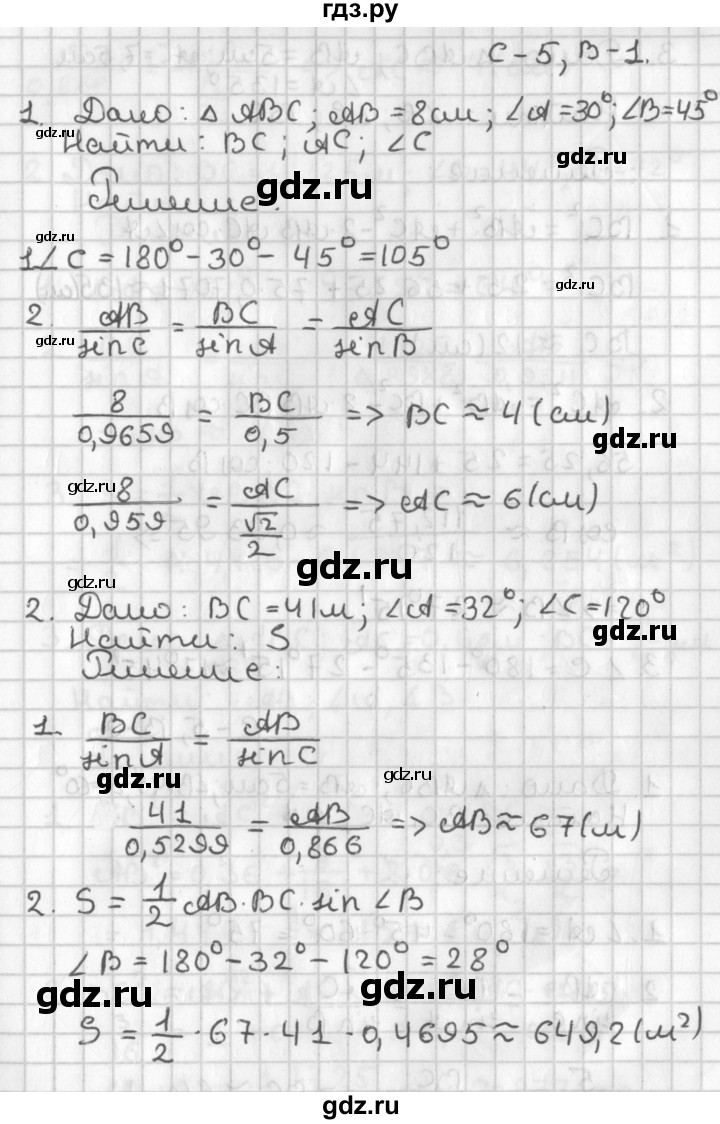 гдз.ру
С-5, В-1.
1. Дано: △ ABC; AB = 8см; ∠A = 30°; ∠B = 45°
gdz.ru
Найти: BC; AC; ∠C
gdz.ru
Решение:
gdz.ru
gdz.ru
1∠C = 180° - 30° - 45° = 105°
gdz.ru
2. AB/sinC = BC/sinA = AC/sinB
gdz.ru
8/0,9659 = BC/0,5 => BC ≈ 4 (см)
gdz.ru
gdz.ru
8/0,959 = AC/(√2/2) => AC ≈ 6 (см)
gdz.ru
gdz.ru
2. Дано: BC = 41м; ∠A = 32°; ∠C = 120°
gdz.ru
Найти: S
Решение:
1. BC/sinA = AB/sinC
gdz.ru
gdz.ru
41/0,5299 = AB/0,866 => AB ≈ 67 (м)
2. S = 1/2 AB·BC·sin∠B
∠B = 180° - 32° - 120° = 28°
gdz.ru
gdz.ru
S = 1/2 · 67 · 41 · 0,4695 ≈ 649,2 (м²)
gdz.ru